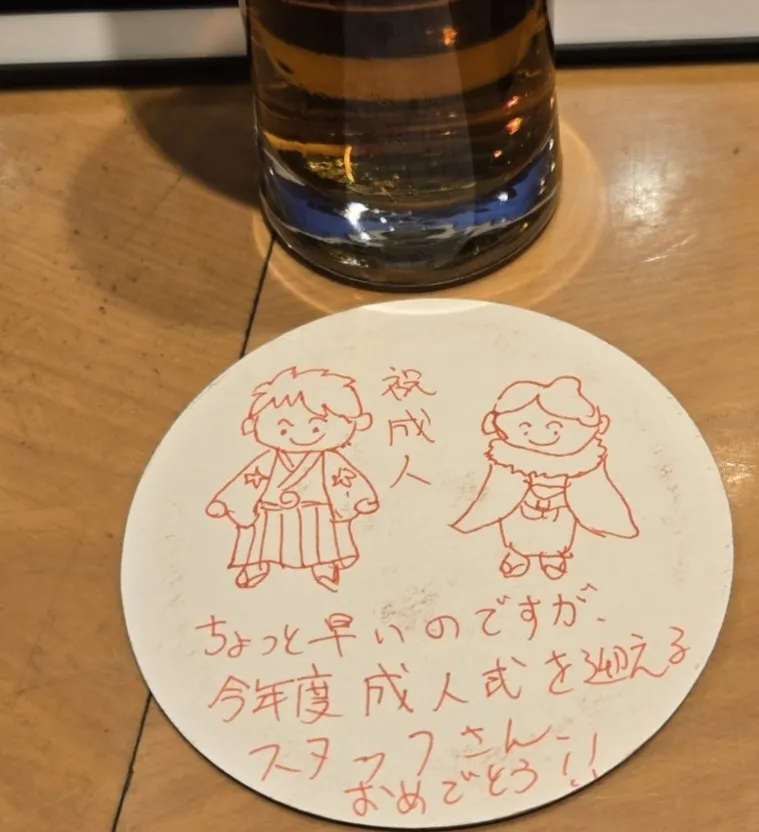 祝成人
ちょっと早いのですが、
今年度成人式を迎える
スタッフさん、
おめでとう!!